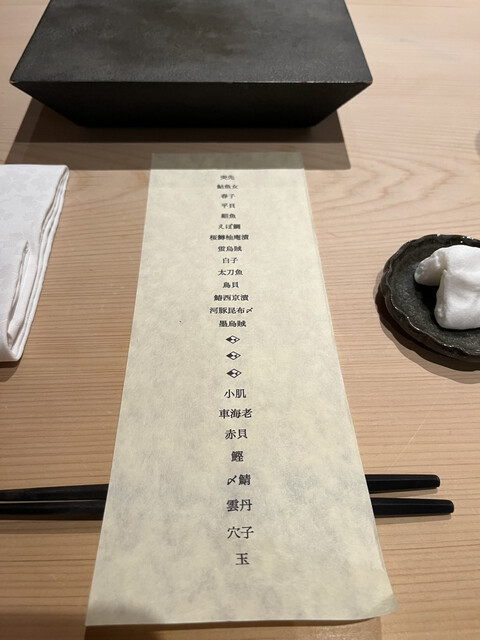 鮎魚女
春子
平貝
鮑魚
えぼ鯛
桜鱒柚庵漬
蛍烏賊
白子
太刀魚
鳥貝
鰆西京漬
河豚昆布〆
墨烏賊
小肌
車海老
赤貝
鰹
〆鯖
雲丹
穴子
玉